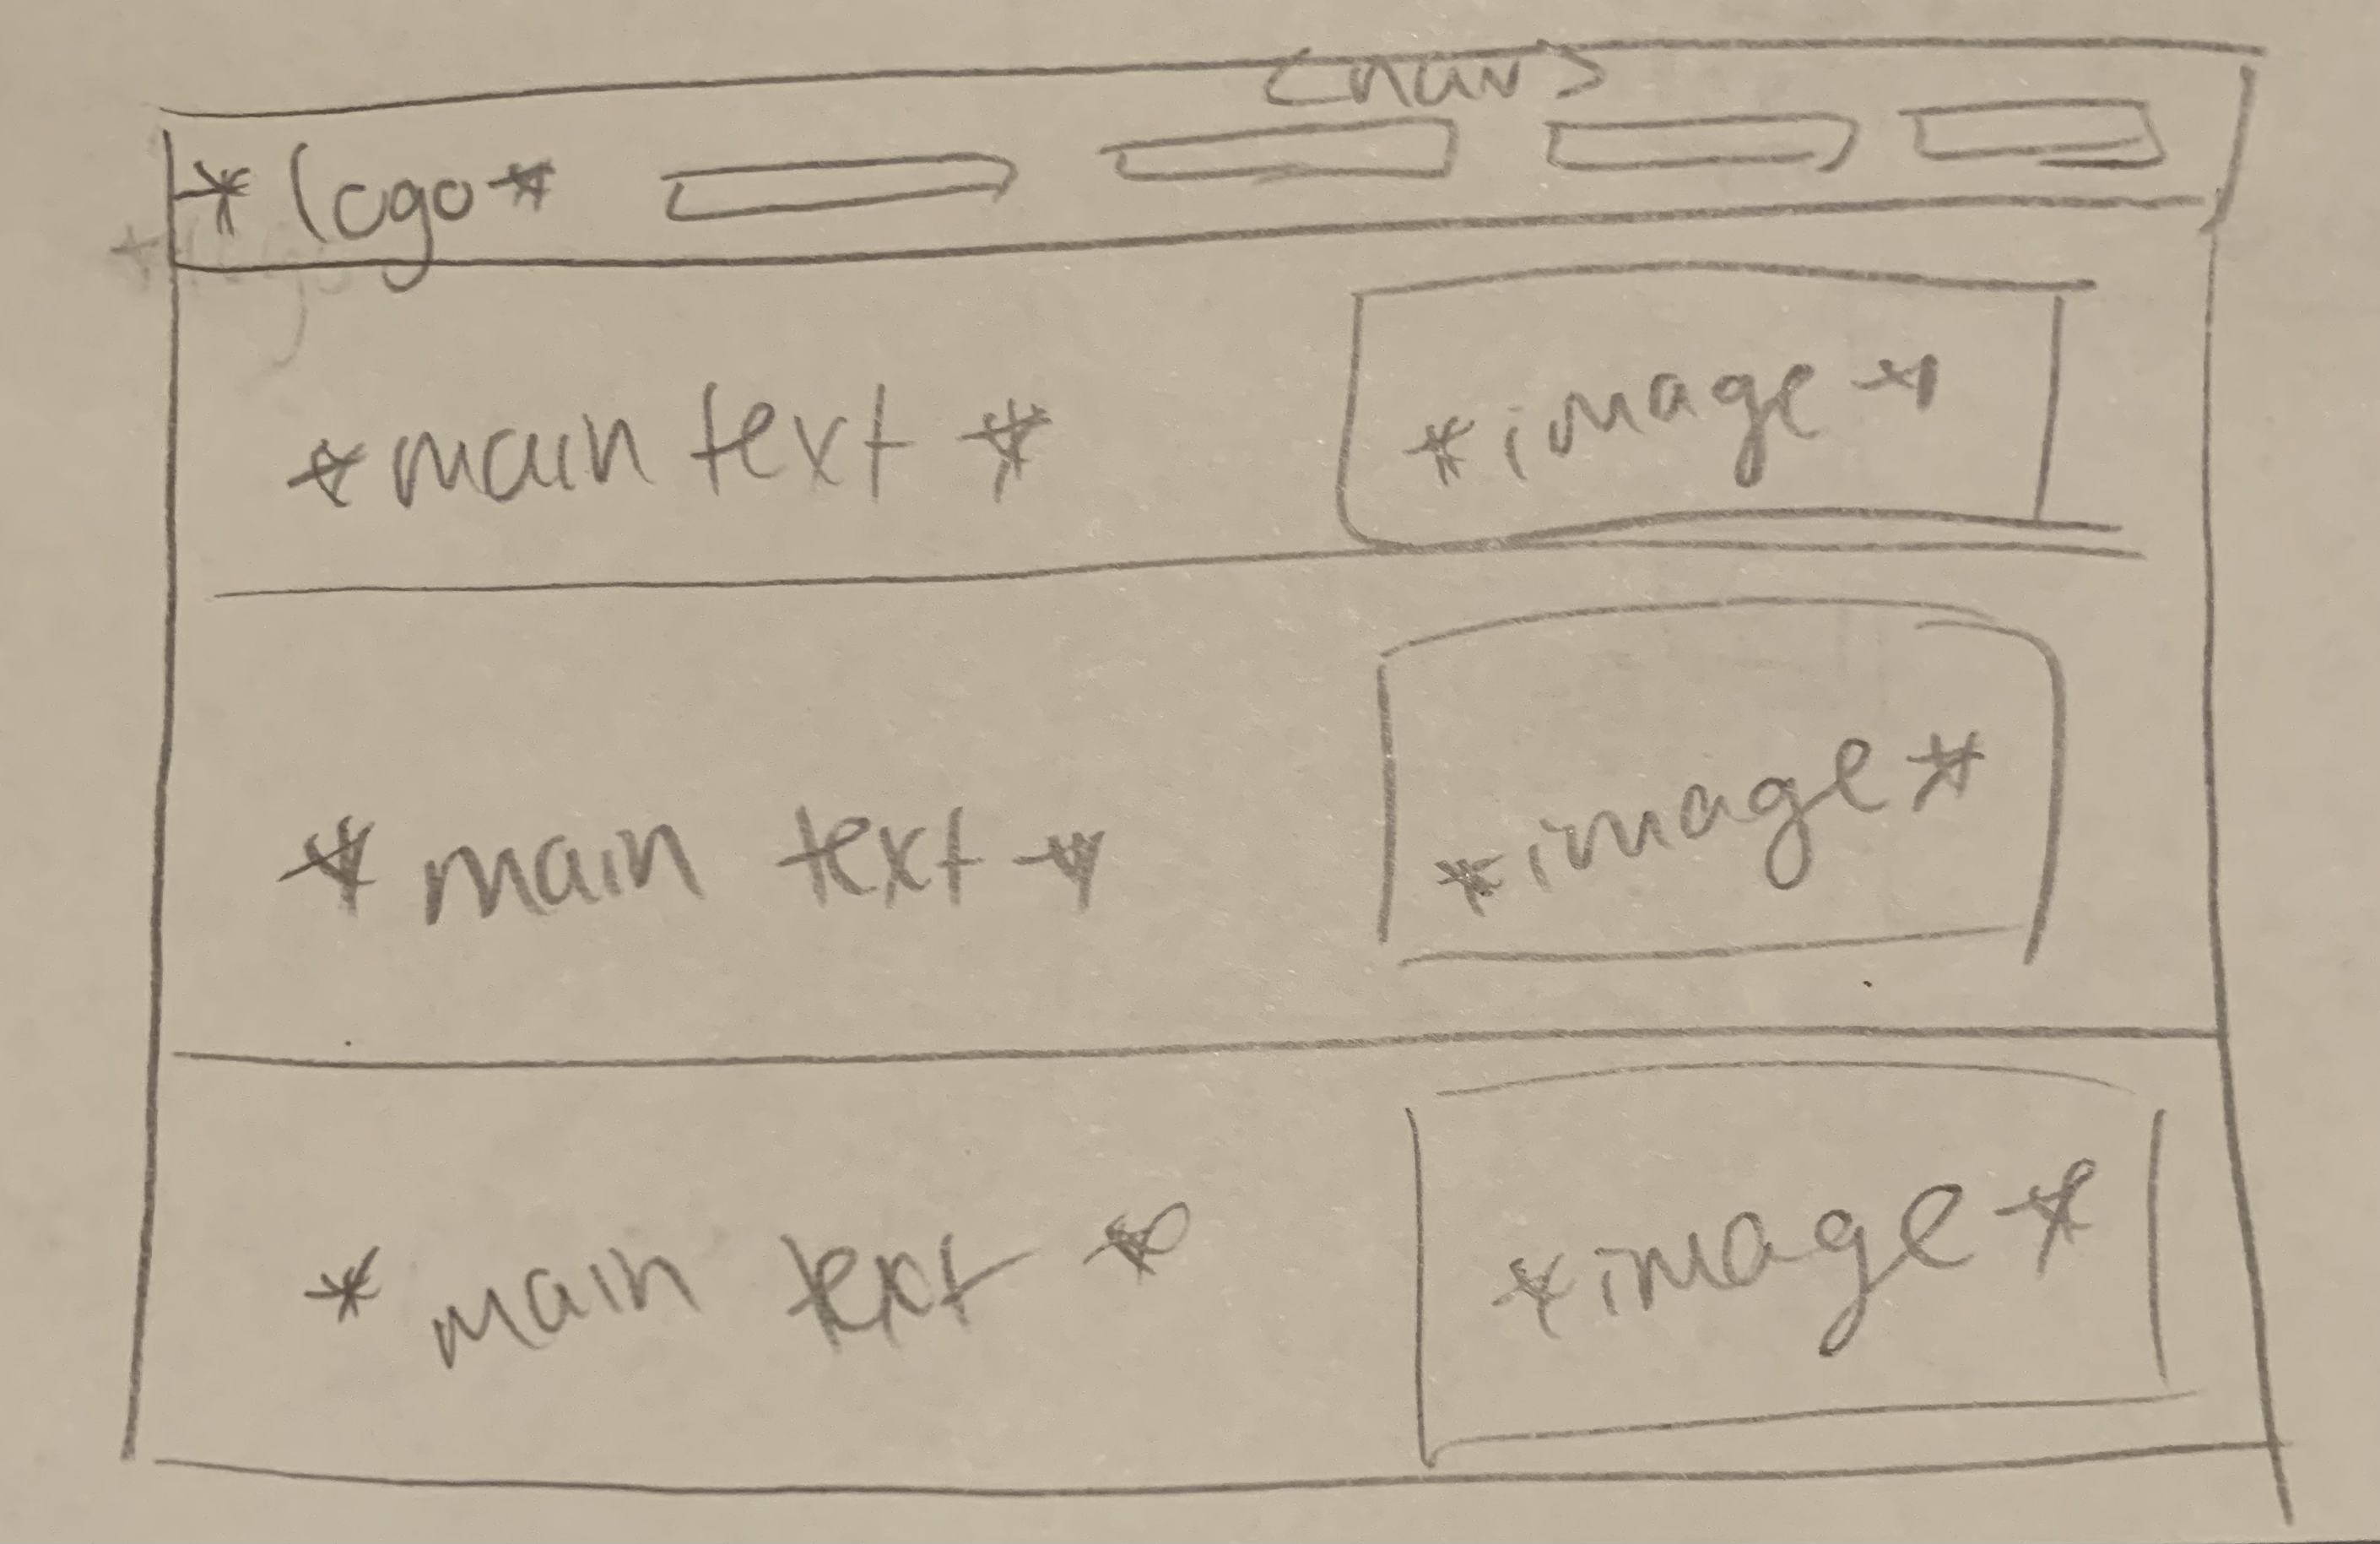 <nav>
*logo*
*main text*
*image*
*main text*
*image*
*main text*
*image*